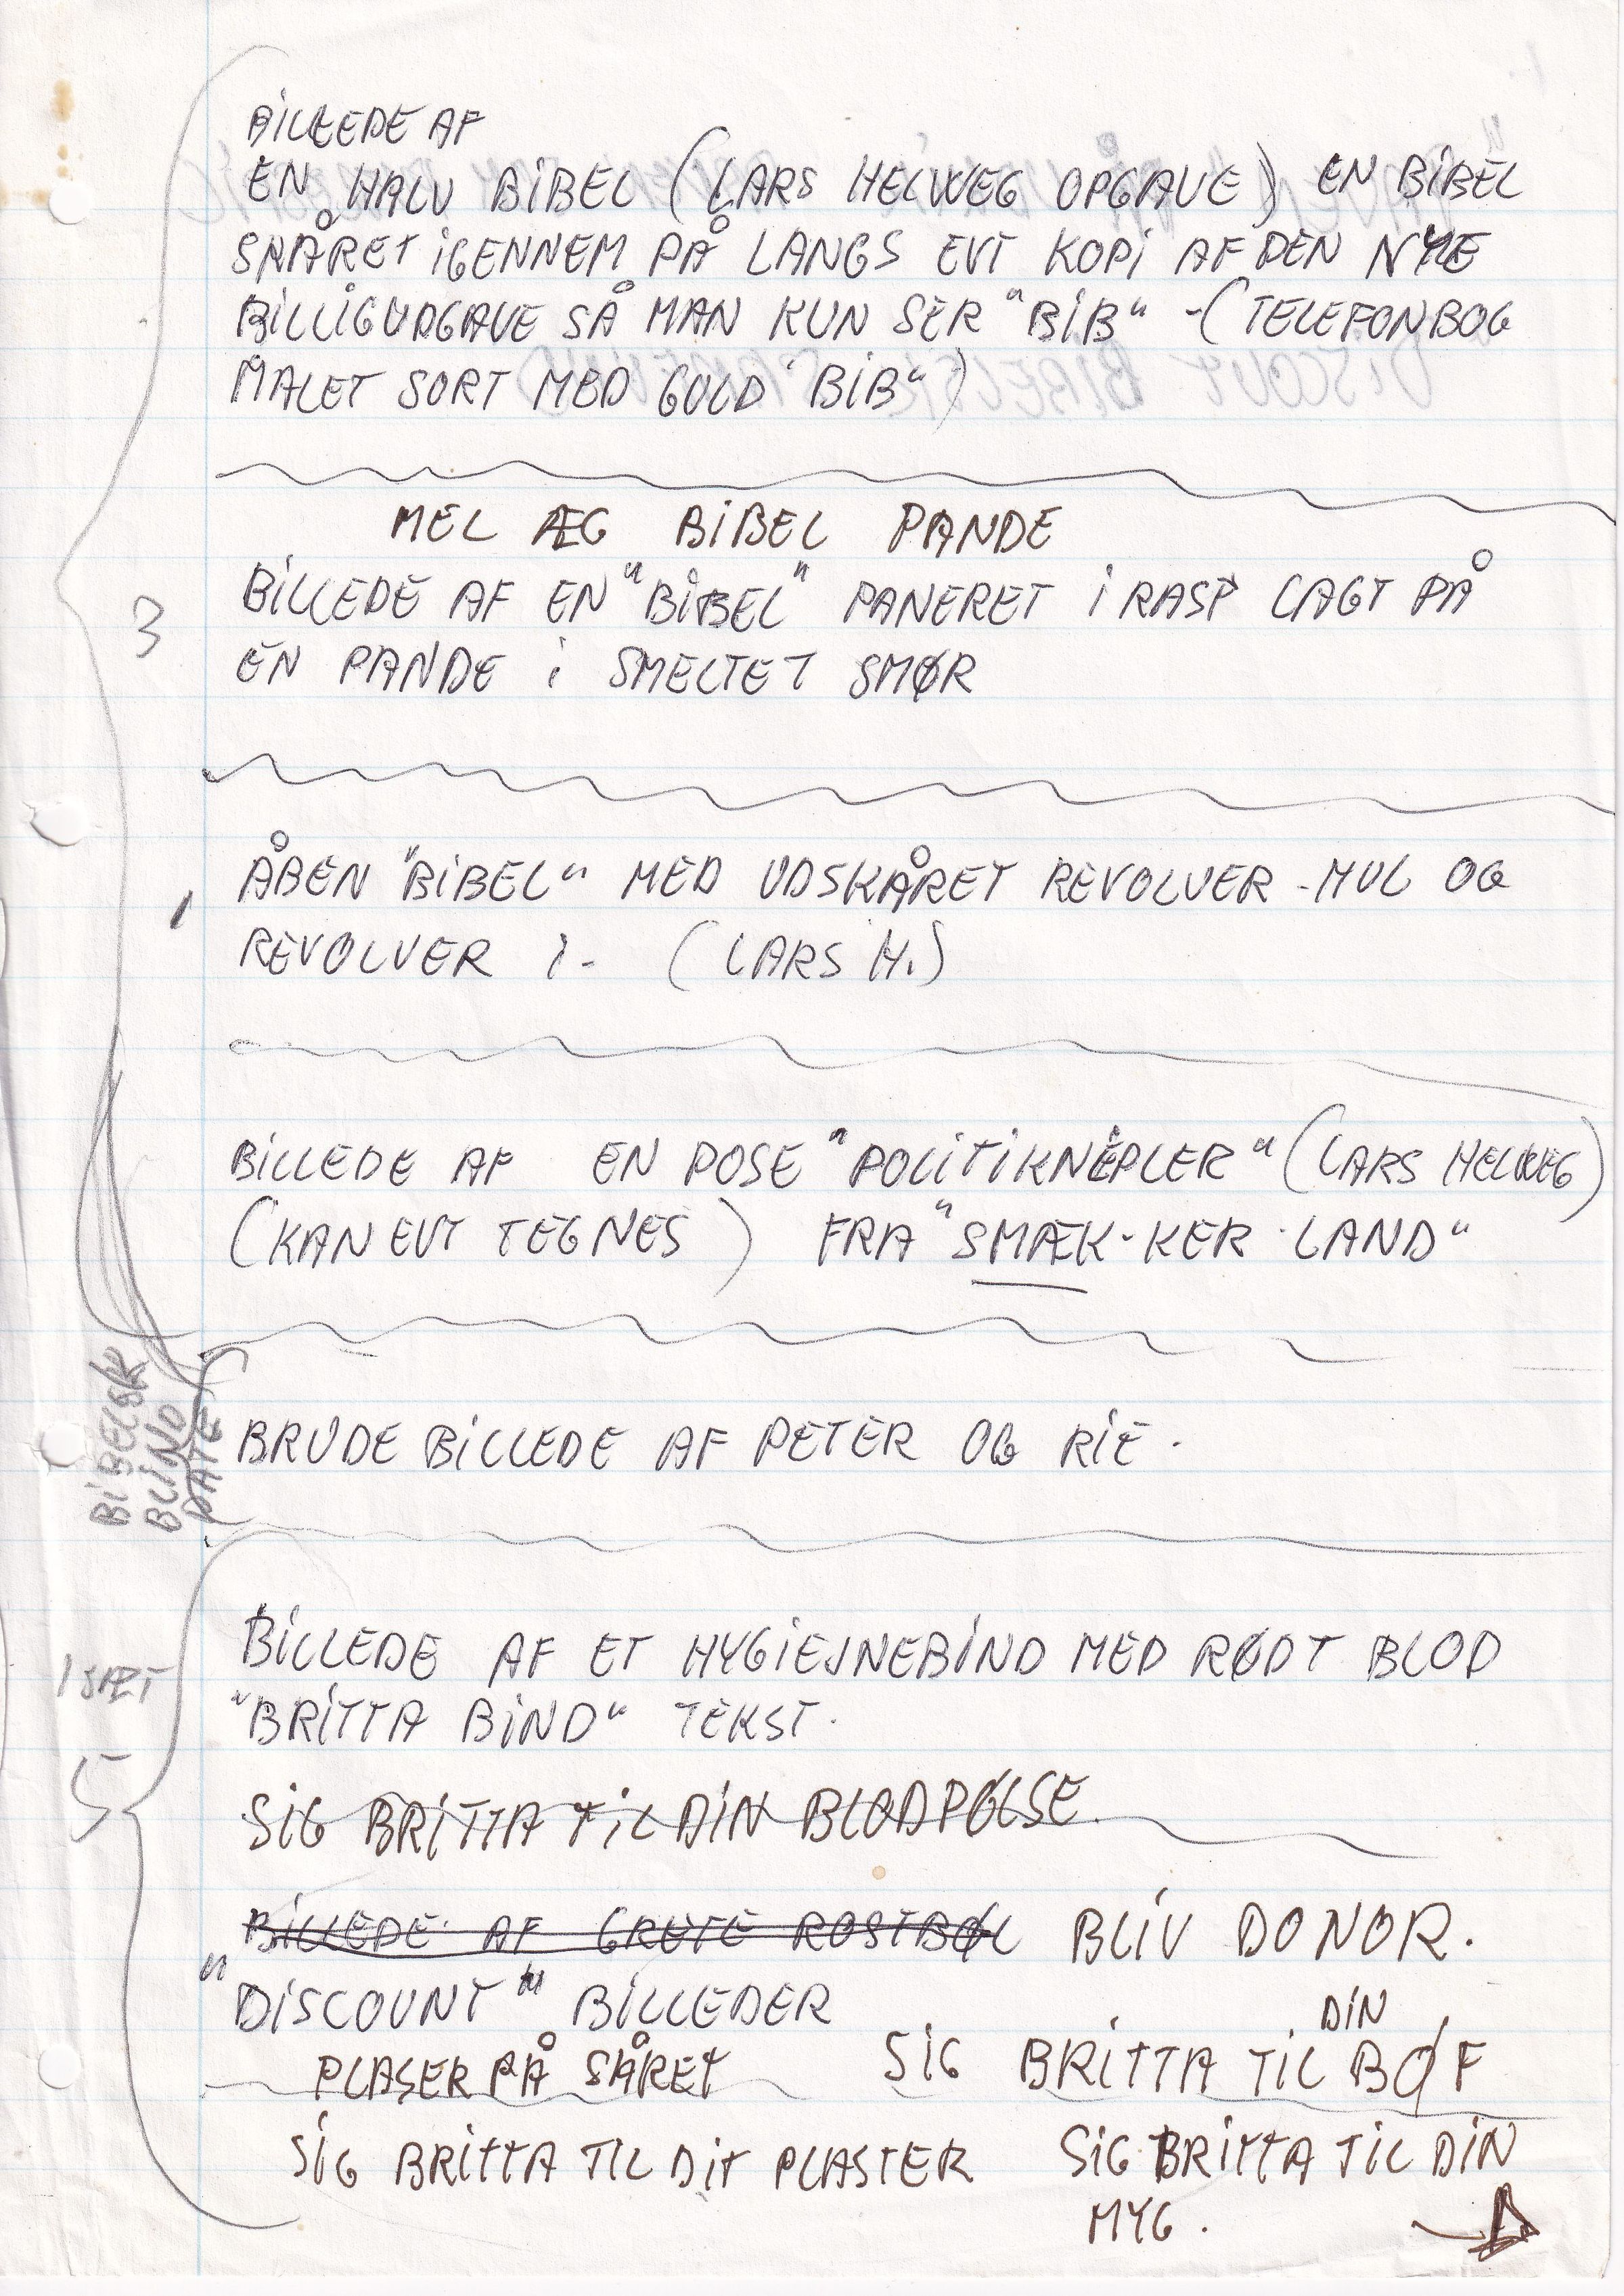 BILLEDE AF
EN HALV BIBEL (LARS HELWEG OPGAVE) EN BIBEL
SKÅRET IGENNEM PÅ LANGS EVT KOPI AF DEN NYE
BILLIGUDGAVE SÅ MAN KUN SER "BIB" - (TELEFONBOG
MALET SORT MED GULD "BIB")
MEL ÆG BIBEL PANDE
BILLEDE AF EN "BIBEL" PANERET I RASP LAGT PÅ
3
EN PANDE I SMELTET SMØR
ÅBEN "BIBEL" MED UDSKÅRET REVOLVER-HUL OG
1
REVOLVER I - (LARS H.)
BILLEDE AF EN POSE "POLITIKNEPLER" (LARS HELWEG)
(KAN EVT TEGNES) FRA "SMÆK-KER-LAND"
BIBELSK
BLIND
DATE
BRUDE BILLEDE AF PETER OG RIE.
BILLEDE AF ET HYGIEJNEBIND MED RØDT BLOD
1 SÆT
"BRITTA BIND" TEKST.
5
SIG BRITTA TIL DIN BLODPØLSE.
BILLEDE AF GRETE ROSTBØL BLIV DONOR.
"DISCOUNT" BILLEDER
DIN
PLASER PÅ SÅRET SIG BRITTA TIL BØF
SIG BRITTA TIL DIT PLASTER SIG BRITTA TIL DIN
MYG.